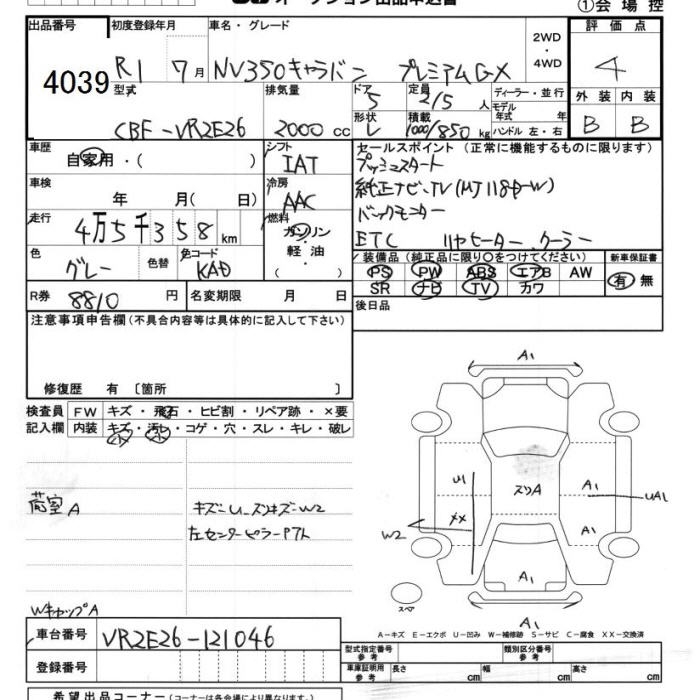 オークション出品申込書
①会場控
出品番号 4039
初度登録年月 R1 7月
車名・グレード NV350キャラバン プレミアムGX
2WD
・
4WD
評価点 4
型式 CBF-VR2E26
排気量 2000 cc
ドア 5
定員 2/5 人
ディーラー・並行
モデル年式 年式
形状 V
積載 1000/850 kg
ハンドル 左・右
外装 B
内装 B
車歴 自家用・( )
シフト IAT
セールスポイント (正常に機能するものに限ります)
プッシュスタート
純正ナビ、TV (MJ118D-W)
バックモニター
ETC リヤヒーター、クーラー
車検 年 月( 日)
冷房 AAC
走行 4万5千358km
燃料 ガソリン
軽油
( )
色 グレー
色替
色コード KAD
装備品 (純正品に限り〇をつけてください)
PS PW ABS エアB AW
SR ナビ TV カワ
新車保証書
有 無
R券 8810 円
名変期限 月 日
後日品
注意事項申告欄(不具合内容等は具体的に記入して下さい)
修復歴 有 〔箇所 〕
検査員記入欄
FW キズ・飛石・ヒビ割・リペア跡・×要
内装 キズ・汚レ・コゲ・穴・スレ・キレ・破レ
荷室A
キズ-U、スリキズ-W2
左センターピラーPアト
WキャップA
A1
A1
U1
XX
W2
スリA
A1
UA1
A1
A1
スペア
A1
A-キズ E-エクボ U-凹み W-補修跡 S-サビ C-腐食 XX-交換済
車台番号 VR2E26-121046
登録番号
型式指定番号
参考
類別区分番号
参考
車庫証明用
参考
長さ cm 幅 cm 高さ cm
希望出品コーナー(コーナーは各会場により異なります)